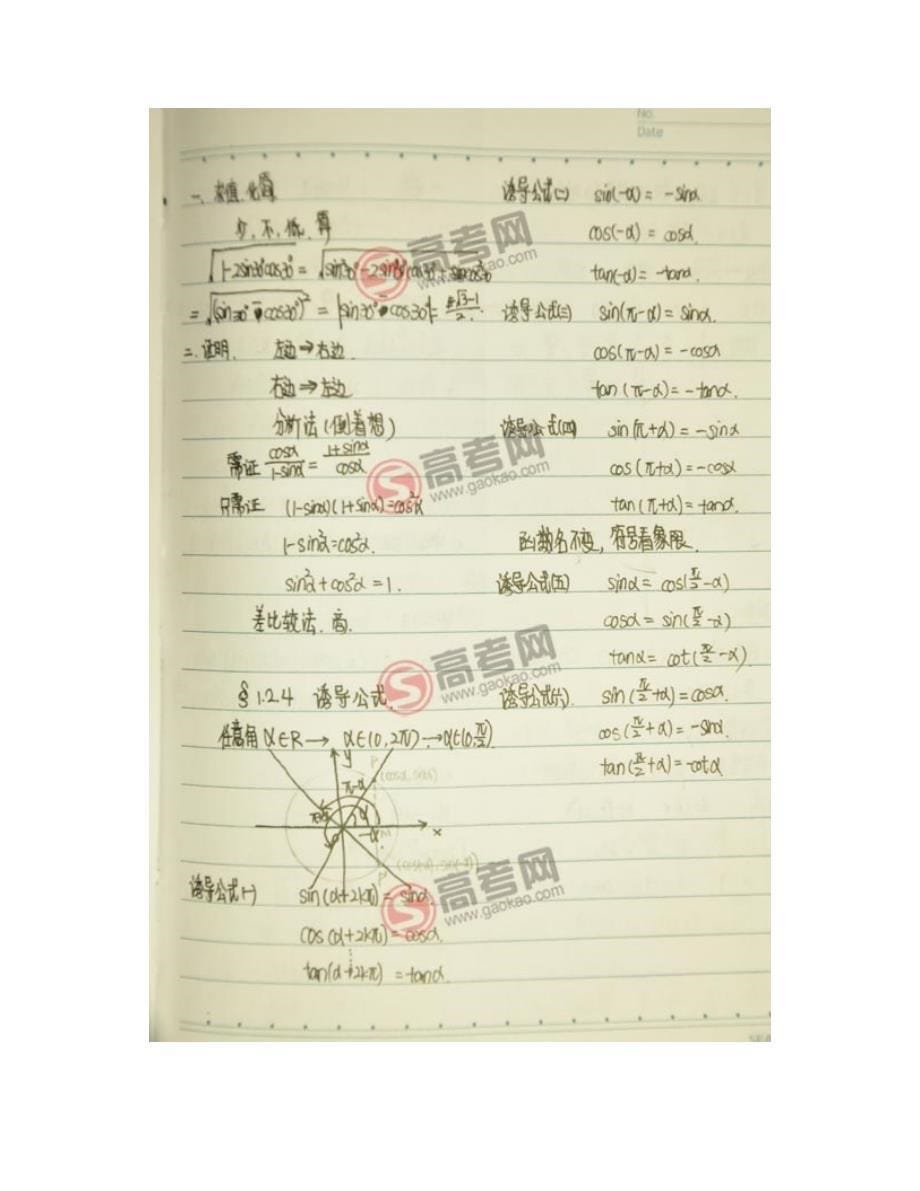 No.
Date
一、求值、化简
少、不、低、算
√1-2sin30°cos30° = √sin²30°-2sin30°cos30°+cos²30°
= √(sin30°-cos30°)² = |sin30°-cos30°| = (√3-1)/2.
二、证明. 左边⇒右边.
右边⇒左边
分析法(倒着想)
需证 cosα/(1-sinα) = (1+sinα)/cosα
只需证 (1-sinα)(1+sinα)=cos²α
1-sin²α=cos²α.
sin²α+cos²α=1.
差比较法. 商.
§1.2.4 诱导公式.
任意角 α∈R → α∈(0,2π) → α∈(0,π/2).
y
π-α
P
(cosα, sinα)
α
M
-α
x
P'
诱导公式(一) sin(α+2kπ)=sinα.
cos(α+2kπ)=cosα.
tan(α+2kπ)=tanα.
诱导公式(二) sin(-α)=-sinα
cos(-α)=cosα.
tan(-α)=-tanα
诱导公式(三) sin(π-α)=sinα.
cos(π-α)=-cosα
tan(π-α)=-tanα.
诱导公式(四) sin(π+α)=-sinα
cos(π+α)=-cosα
tan(π+α)=tanα.
函数名不变,符号看象限.
诱导公式(五) sinα=cos(π/2-α)
cosα=sin(π/2-α)
tanα=cot(π/2-α)
诱导公式(六). sin(π/2+α)=cosα.
cos(π/2+α)=-sinα
tan(π/2+α)=-cotα
高考网
www.gaokao.com
高考网
www.gaokao.com
高考网
www.gaokao.com
高考网
www.gaokao.com